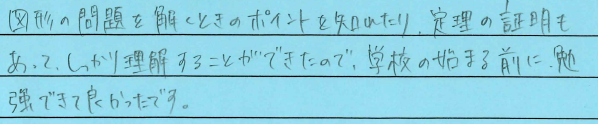 図形の問題を解くときのポイントを知れたり、定理の証明も
あって、しっかり理解することができたので、学校の始まる前に、勉
強できて良かったです。